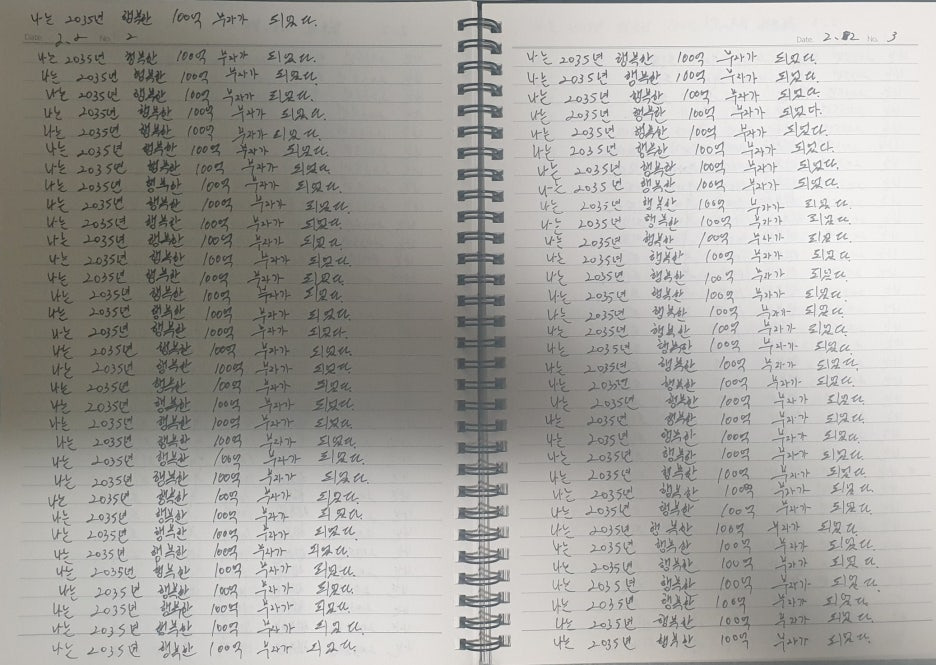 나는 2035년 행복한 100억 부자가 되었다.
Date 2.2 No. 2
나는 2035년 행복한 100억 부자가 되었다.
나는 2035년 행복한 100억 부자가 되었다.
나는 2035년 행복한 100억 부자가 되었다.
나는 2035년 행복한 100억 부자가 되었다.
나는 2035년 행복한 100억 부자가 되었다.
나는 2035년 행복한 100억 부자가 되었다.
나는 2035년 행복한 100억 부자가 되었다.
나는 2035년 행복한 100억 부자가 되었다.
나는 2035년 행복한 100억 부자가 되었다.
나는 2035년 행복한 100억 부자가 되었다.
나는 2035년 행복한 100억 부자가 되었다.
나는 2035년 행복한 100억 부자가 되었다.
나는 2035년 행복한 100억 부자가 되었다.
나는 2035년 행복한 100억 부자가 되었다.
나는 2035년 행복한 100억 부자가 되었다.
나는 2035년 행복한 100억 부자가 되었다.
나는 2035년 행복한 100억 부자가 되었다.
나는 2035년 행복한 100억 부자가 되었다.
나는 2035년 행복한 100억 부자가 되었다.
나는 2035년 행복한 100억 부자가 되었다.
나는 2035년 행복한 100억 부자가 되었다.
나는 2035년 행복한 100억 부자가 되었다.
나는 2035년 행복한 100억 부자가 되었다.
나는 2035년 행복한 100억 부자가 되었다.
나는 2035년 행복한 100억 부자가 되었다.
나는 2035년 행복한 100억 부자가 되었다.
나는 2035년 행복한 100억 부자가 되었다.
나는 2035년 행복한 100억 부자가 되었다.
나는 2035년 행복한 100억 부자가 되었다.
나는 2035년 행복한 100억 부자가 되었다.
나는 2035년 행복한 100억 부자가 되었다.
나는 2035년 행복한 100억 부자가 되었다.
나는 2035년 행복한 100억 부자가 되었다.
Date 2.2 No. 3
나는 2035년 행복한 100억 부자가 되었다.
나는 2035년 행복한 100억 부자가 되었다.
나는 2035년 행복한 100억 부자가 되었다.
나는 2035년 행복한 100억 부자가 되었다.
나는 2035년 행복한 100억 부자가 되었다.
나는 2035년 행복한 100억 부자가 되었다.
나는 2035년 행복한 100억 부자가 되었다.
나는 2035년 행복한 100억 부자가 되었다.
나는 2035년 행복한 100억 부자가 되었다.
나는 2035년 행복한 100억 부자가 되었다.
나는 2035년 행복한 100억 부자가 되었다.
나는 2035년 행복한 100억 부자가 되었다.
나는 2035년 행복한 100억 부자가 되었다.
나는 2035년 행복한 100억 부자가 되었다.
나는 2035년 행복한 100억 부자가 되었다.
나는 2035년 행복한 100억 부자가 되었다.
나는 2035년 행복한 100억 부자가 되었다.
나는 2035년 행복한 100억 부자가 되었다.
나는 2035년 행복한 100억 부자가 되었다.
나는 2035년 행복한 100억 부자가 되었다.
나는 2035년 행복한 100억 부자가 되었다.
나는 2035년 행복한 100억 부자가 되었다.
나는 2035년 행복한 100억 부자가 되었다.
나는 2035년 행복한 100억 부자가 되었다.
나는 2035년 행복한 100억 부자가 되었다.
나는 2035년 행복한 100억 부자가 되었다.
나는 2035년 행복한 100억 부자가 되었다.
나는 2035년 행복한 100억 부자가 되었다.
나는 2035년 행복한 100억 부자가 되었다.
나는 2035년 행복한 100억 부자가 되었다.
나는 2035년 행복한 100억 부자가 되었다.
나는 2035년 행복한 100억 부자가 되었다.
나는 2035년 행복한 100억 부자가 되었다.